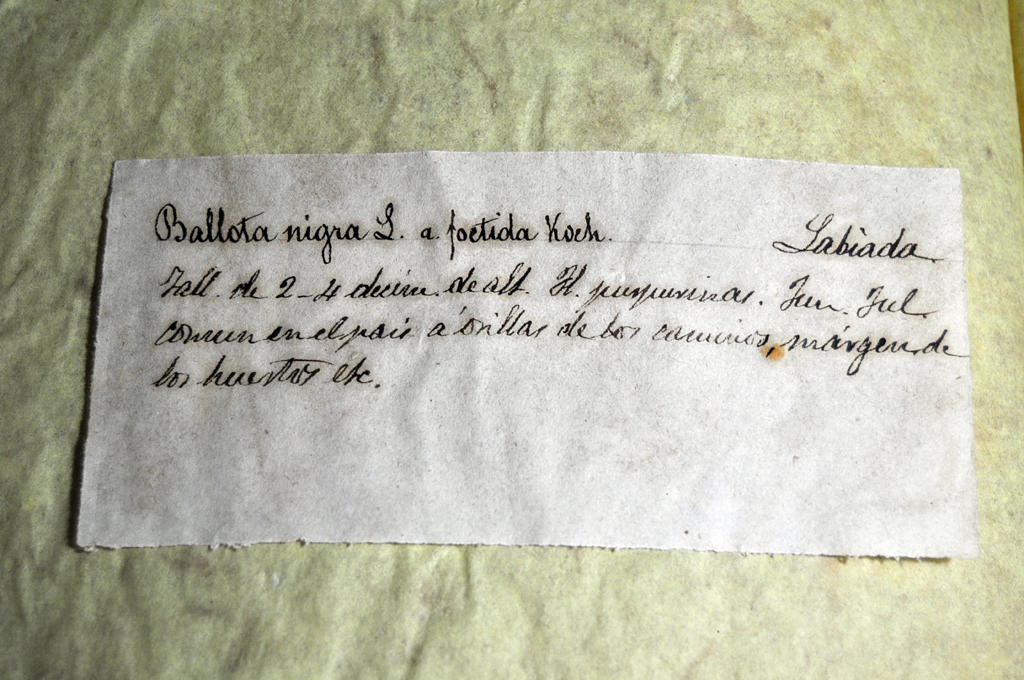 Ballota nigra L. a. foetida Koch. Labiada
Tall. de 2-4 decím. de alt. Fl. purpurinas. Jun. Jul.
comun en el pais á orillas de los caminos, márgen de
los huertos etc.